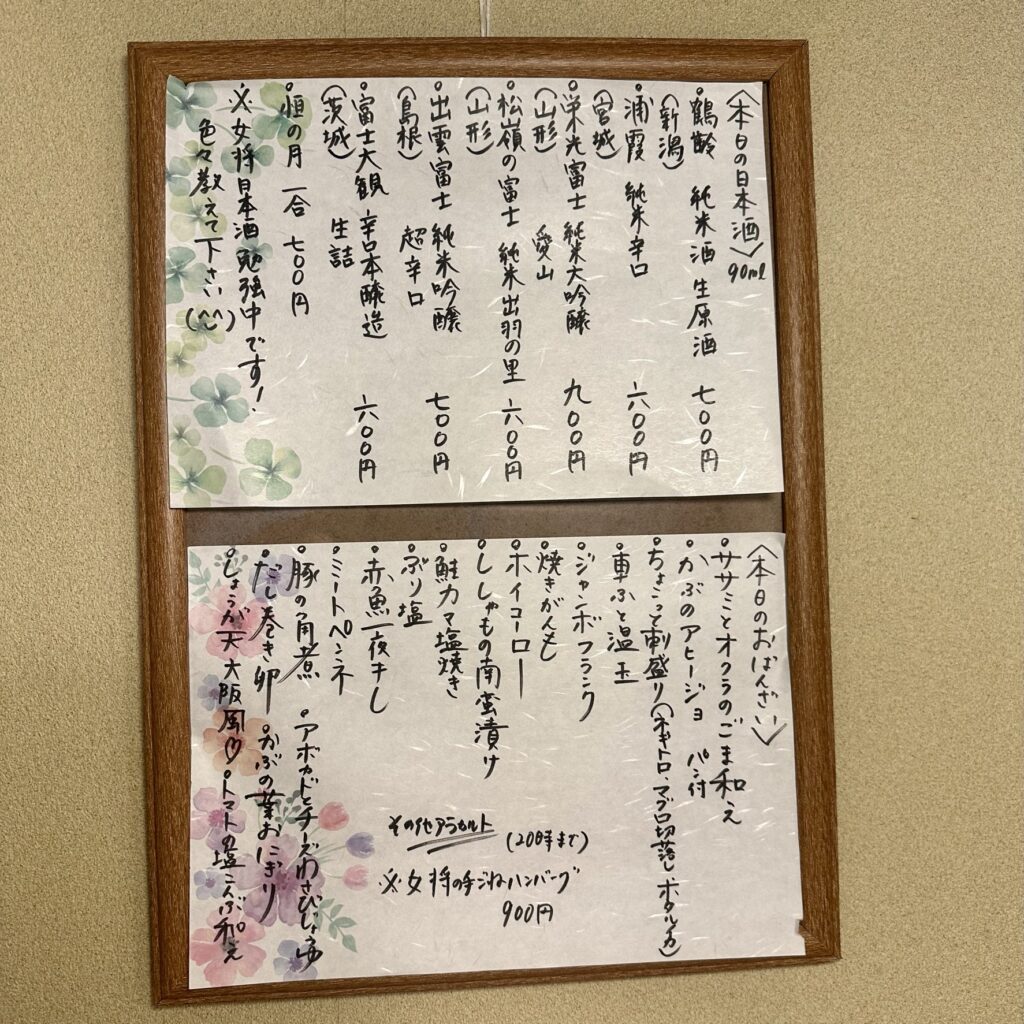 〈本日の日本酒〉90ml
・鶴齢 純米酒 生原酒 七〇〇円
(新潟)
・浦霞 純米辛口 六〇〇円
(宮城)
・栄光冨士 純米大吟醸 九〇〇円
(山形) 愛山
・松嶺の富士 純米出羽の里 六〇〇円
(山形)
・出雲富士 純米吟醸 七〇〇円
(島根) 超辛口
・富士大観 辛口本醸造 六〇〇円
(茨城) 生詰
・恒の月 一合 七〇〇円
※女将日本酒勉強中です!
色々教えて下さい(^^)
〈本日のおばんざい〉
・ササミとオクラのごま和え
・かぶのアヒージョ パン付
・ちょこっと刺盛り(ネギトロ、マグロ切落し、ホタルイカ)
・車ふと温玉
・ジャンボフランク
・焼きがんも
・ホイコーロー
・ししゃもの南蛮漬け
・鮭カマ塩焼き
・ぶり塩
・赤魚一夜干し
・ミートペンネ
・豚の角煮 ・アボカドとチーズわさびじょうゆ
・だし巻き卵 ・かぶの葉おにぎり
・しょうが天大阪風♡ ・トマトの塩こんぶ和え
その他アラカルト
(20時まで)
※女将の手ごねハンバーグ
900円